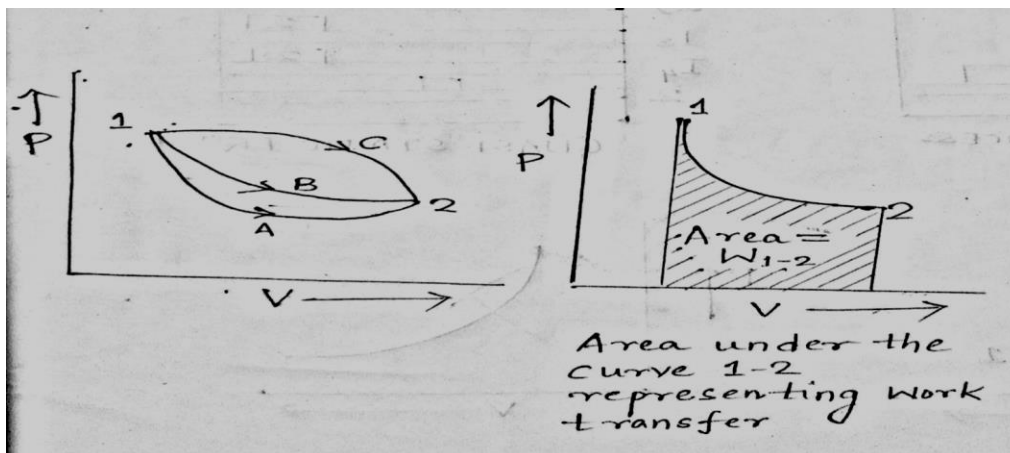 ↑
P
1
C
B
A
2
V →
↑
P
1
2
Area =
W1-2
V →
Area under the
curve 1-2
representing work
transfer